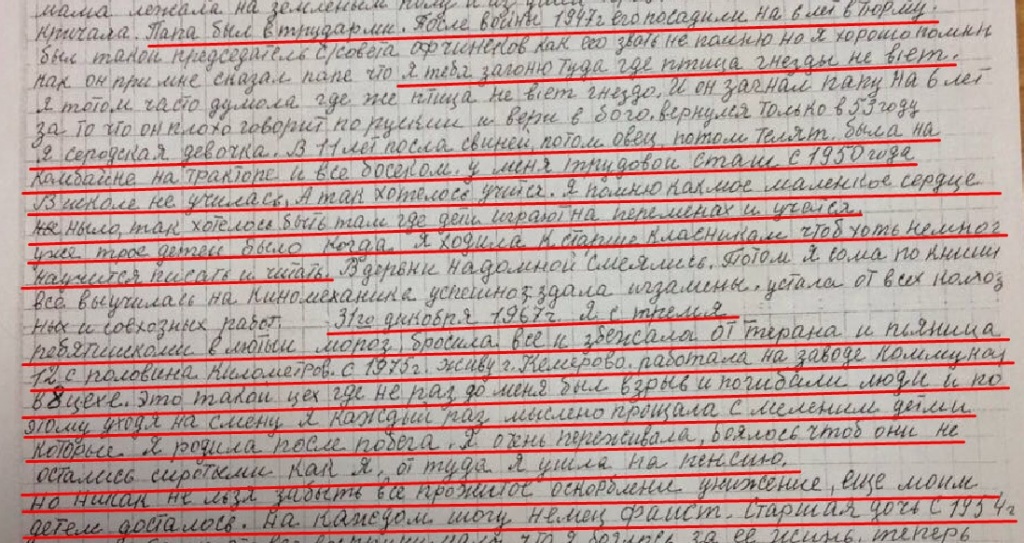 мама лежала на земленым полу и
кричала. Папа был в трудармии. После войны 1947г его посадили на 6 лет в тюрму.
был такой председатель с/совета офчинеков как его звать не помню но я хорошо помню
как он при мне сказал папе что я тебя загоню туда где птица гнезды не віет.
я потом часто думола где же птица не віет гнездо. И он загнал папу на 6 лет
за то что он плохо говорит по руский и вери в бога. вернулся только в 53 году
Я серодская девочка. В 11 лет посла свиней, потом овец, потом телят. была на
камбайне на тракторе и все босеком. у меня трудовой сташ с 1950 года
В школе не училась, А так хотелось учится. Я помню как мое маленкое сердце
ныло, так хотелось быть там где дети играют на переменах и учатся.
уже трое детей было когда я ходила к старше класникам чтоб хоть немног
научится писать и читать. В дерьвни надомной смеялись. Потом я сома по книгий
всё выучилась на киномеханика успешно здала игзамены. устала от всех колхоз
ных и совхозных работ. 31го дикобря 1967г. Я с тремя
ребятишками в лютый мороз бросила все и збежала от тирана и пяница
12 с половина километров. С 1975г. живу г. Кемерово, работала на заводе коммунал
в 8 цехе. это такой цех где не раз до меня был взрыв и погибали люди и по
этому уходя на смену я каждый раз мыслено прощала с мелением детми
которые я родила после побега. Я очень переживала, боялось чтоб они не
остались сиротыми как я, от туда я ушла на пенсию.
но никак не льзя забыть все прожитое оскорблени унижение, еще моим
детем досталось. На каждом шогу немец фашст. старшая дочь с 1954г
за ее жизнь. теперь